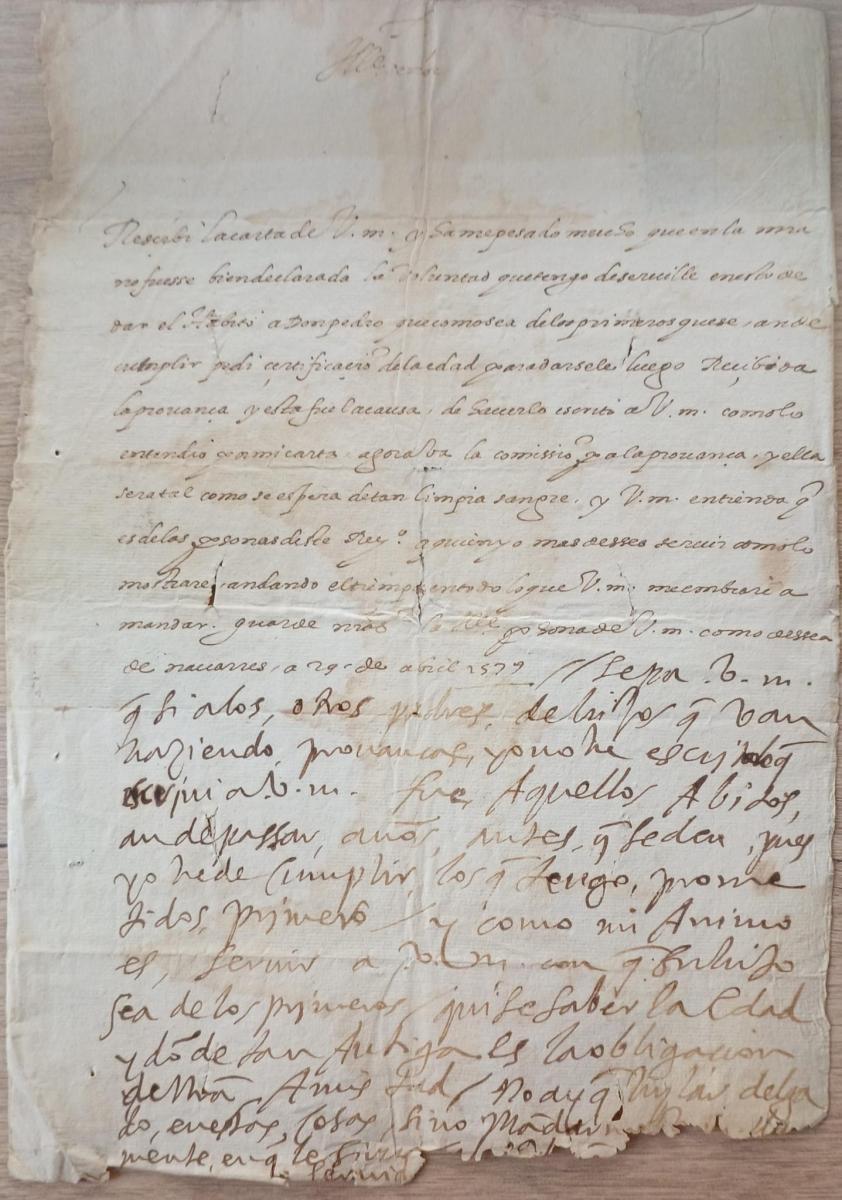 Resçebi la carta de V. m. y hame pesado mucho que en la mia
no fuesse bien declarada la voluntad que tengo de seruille en esto de
dar el Abito a Don pedro que como sea de los primeros que se an de
cumplir pedi çertificaçio͂ de la edad para darsele luego Reçibida
la prouança y esta fue la causa, de hauerlo escrito a V. m. como lo
entendio por mi carta. agora va la comissio͂ pa la prouança, y ella
sera tal como se espera de tan limpia sangre. y V. m. entienda q̃
es de las psonas deste Reyº. a quien yo mas desseo seruir como lo
mostrare andando el tiempo en todo lo que V. m. me embiare a
mandar. guarde nr̃o s͂ la psona de V. m. como dessea
de nauarres, a 29. de abril 1579 // sepa v. m.
q̃ si a los, otros padres, de hijos q̃ van
haziendo, prouanças, yo no he escrito
v. m. fue, Aquellos Abitos,
an de passar, años, antes, q̃ se den, pues
yo he de Cumplir, los q̃ tengo, prome
tidos, primero / y como mi Animo
es, seruir a v. m. con q̃ su hijo
sea de los primeros / quise saber la Edad
y do͂de tan Antiga es la obligacion
de nr̃a Amistad / no ay q̃
en estas, Cosas, sino
mente, en q̃ le sirua